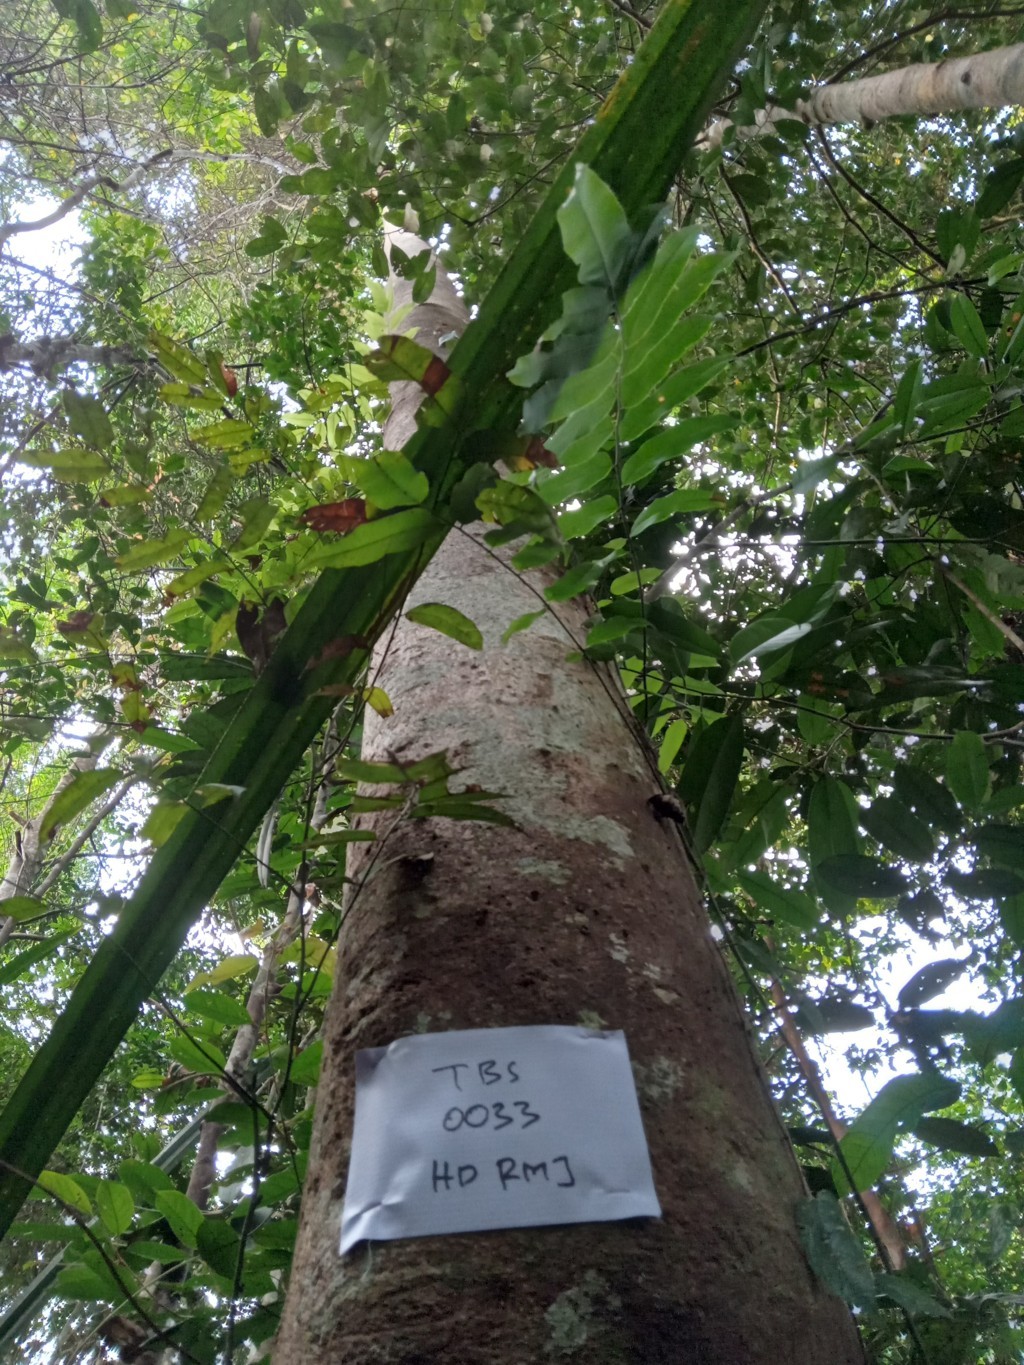 TBS
0033
HD RMJ